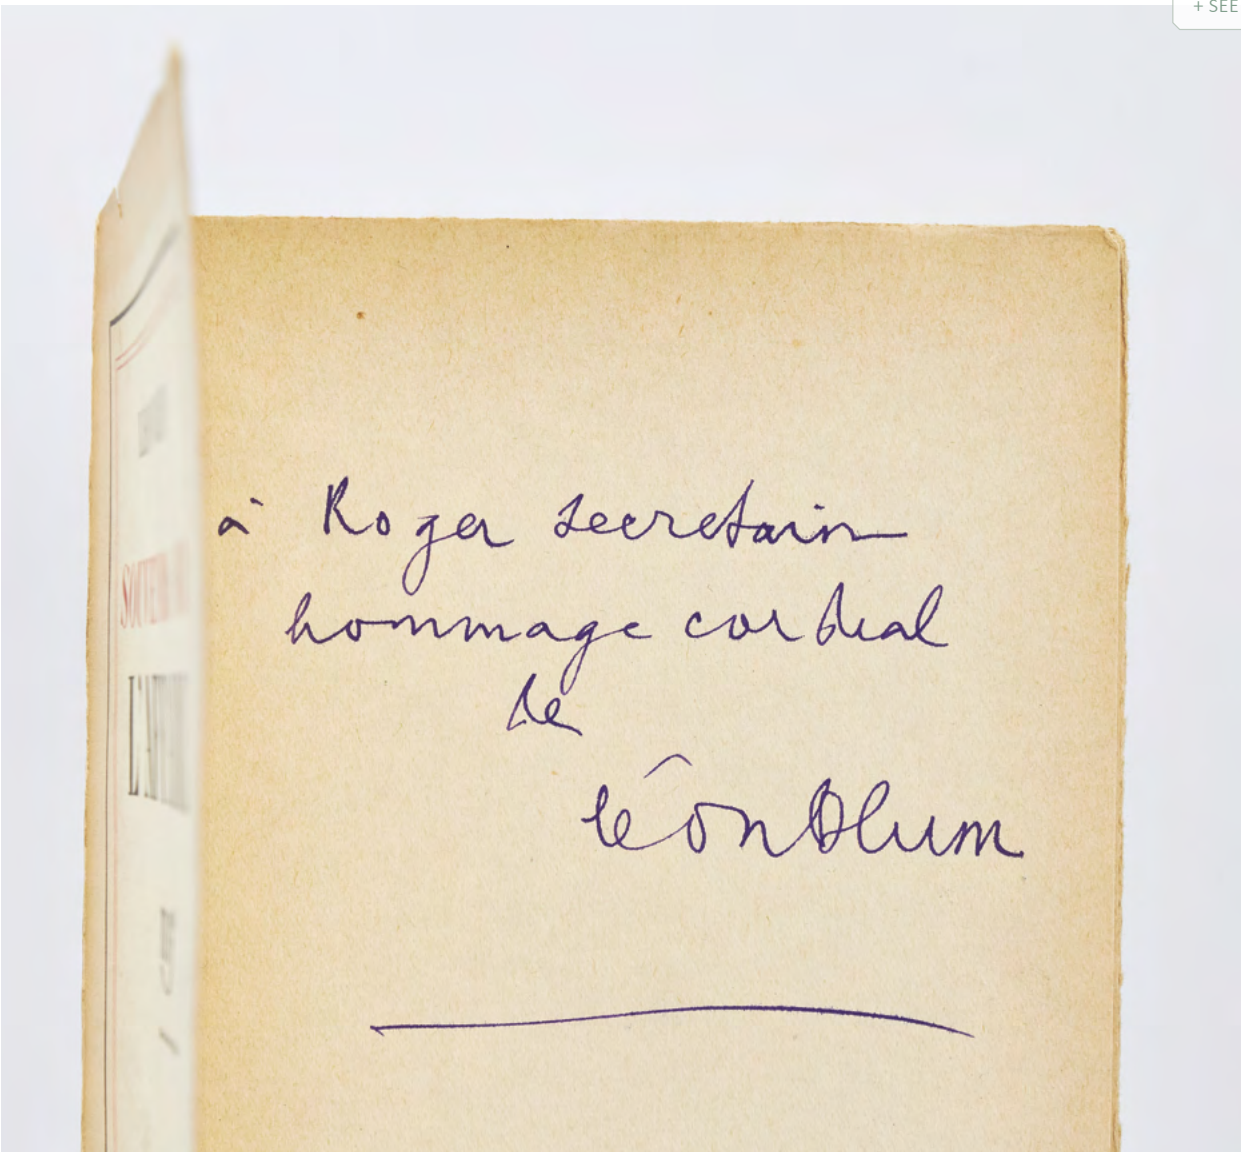 + SEE
à Roger Secretain
hommage cordial
de
Léon Blum